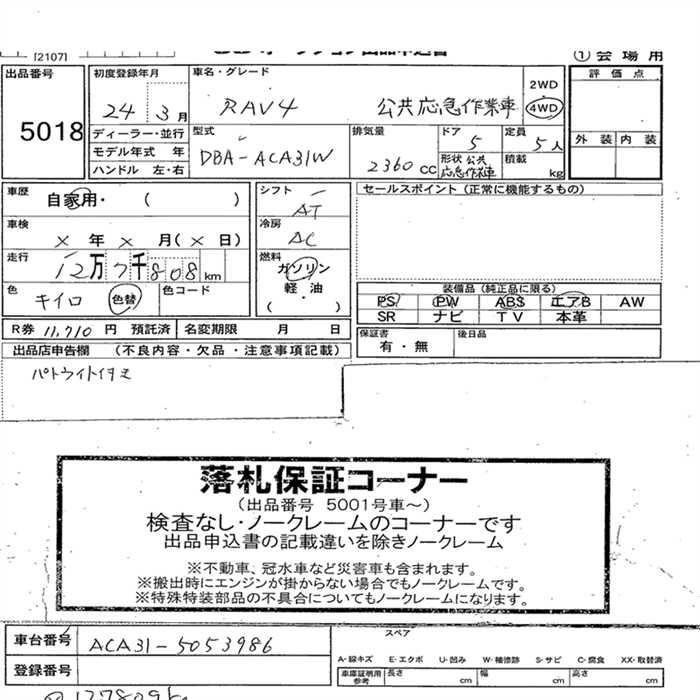 [2107]
オークション出品申込書
① 会場用
出品番号 5018
初度登録年月 24 3月
車名・グレード RAV4 公共応急作業車
2WD
4WD
評価点
外装 内装
ディーラー・並行
モデル年式 年
ハンドル 左・右
型式 DBA-ACA31W
排気量 2360 CC
ドア 5
定員 5人
形状 公共応急作業車
積載 kg
車歴 自家用・( )
シフト AT
セールスポイント(正常に機能するもの)
車検 × 年 × 月(× 日)
冷房 AC
走行 12万7千808km
燃料 ガソリン
軽・油
( ・ )
色 キイロ 色替
色コード
装備品(純正品に限る)
PS PW ABS エアB AW
SR ナビ TV 本革
R券 11,710 円 預託済
名変期限 月 日
保証書 有・無
後日品
出品店申告欄 (不良内容・欠品・注意事項記載)
パトライトイタミ
落札保証コーナー
(出品番号 5001号車~)
検査なし・ノークレームのコーナーです
出品申込書の記載違いを除きノークレーム
※不動車、冠水車など災害車も含まれます。
※搬出時にエンジンが掛からない場合でもノークレームです。
※特殊特装部品の不具合についてもノークレームになります。
車台番号 ACA31-5053986
スペア
登録番号
A-線キズ E-エクボ U-凹み W-補修跡 S-サビ C-腐食 XX-取替済
車庫証明用参考 長さ cm 幅 cm 高さ cm